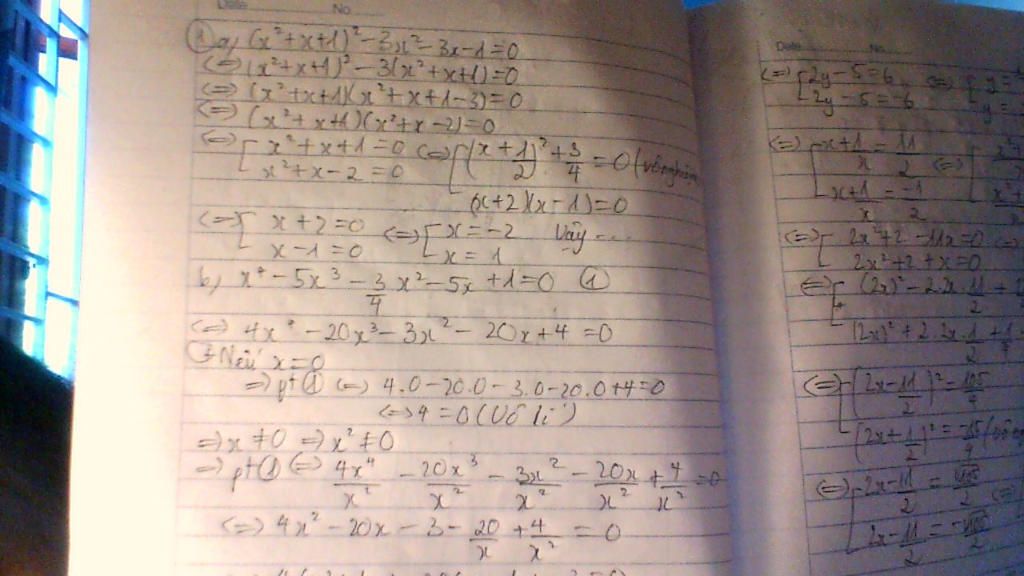 Date No
1 a) (x²+x+1)² - 3x² - 3x - 1 = 0
<=> (x²+x+1)² - 3(x²+x+1) = 0
<=> (x²+x+1)(x²+x+1-3) = 0
<=> (x²+x+1)(x²+x-2) = 0
<=> [ x²+x+1 = 0 <=> [ (x + 1/2)² + 3/4 = 0 (vô nghiệm
x²+x-2 = 0
(x+2)(x-1) = 0
<=> [ x+2 = 0 <=> [ x = -2 Vậy ...
x-1 = 0 x = 1
b) x⁴ - 5x³ - 3/4 x² - 5x + 1 = 0 (1)
<=> 4x⁴ - 20x³ - 3x² - 20x + 4 = 0
+ Nếu x = 0
=> pt (1) <=> 4.0 - 20.0 - 3.0 - 20.0 + 4 = 0
<=> 4 = 0 (Vô lí)
=> x ≠ 0 => x² ≠ 0
=> pt (1) <=> 4x⁴/x² - 20x³/x² - 3x²/x² - 20x/x² + 4/x² = 0
<=> 4x² - 20x - 3 - 20/x + 4/x² = 0
Date No
<=> [ 2y - 5 = 6 <=> [ y =
2y - 5 = -6 y =
<=> [ x+1/x = 11/2 <=> [
x+1/x = -1/2
<=> [ 2x²+2-11x = 0 <=>
2x²+2+x = 0
<=> [ (2x)² - 2.2x.11/2 +
(2x)² + 2.2x.1/2 +
<=> [ (2x - 11/2)² = 105/4
(2x + 1/2)² = -15/4 (vô
<=> [ 2x - 11/2 = √105/2 <=>
2x - 11/2 = -√105/2